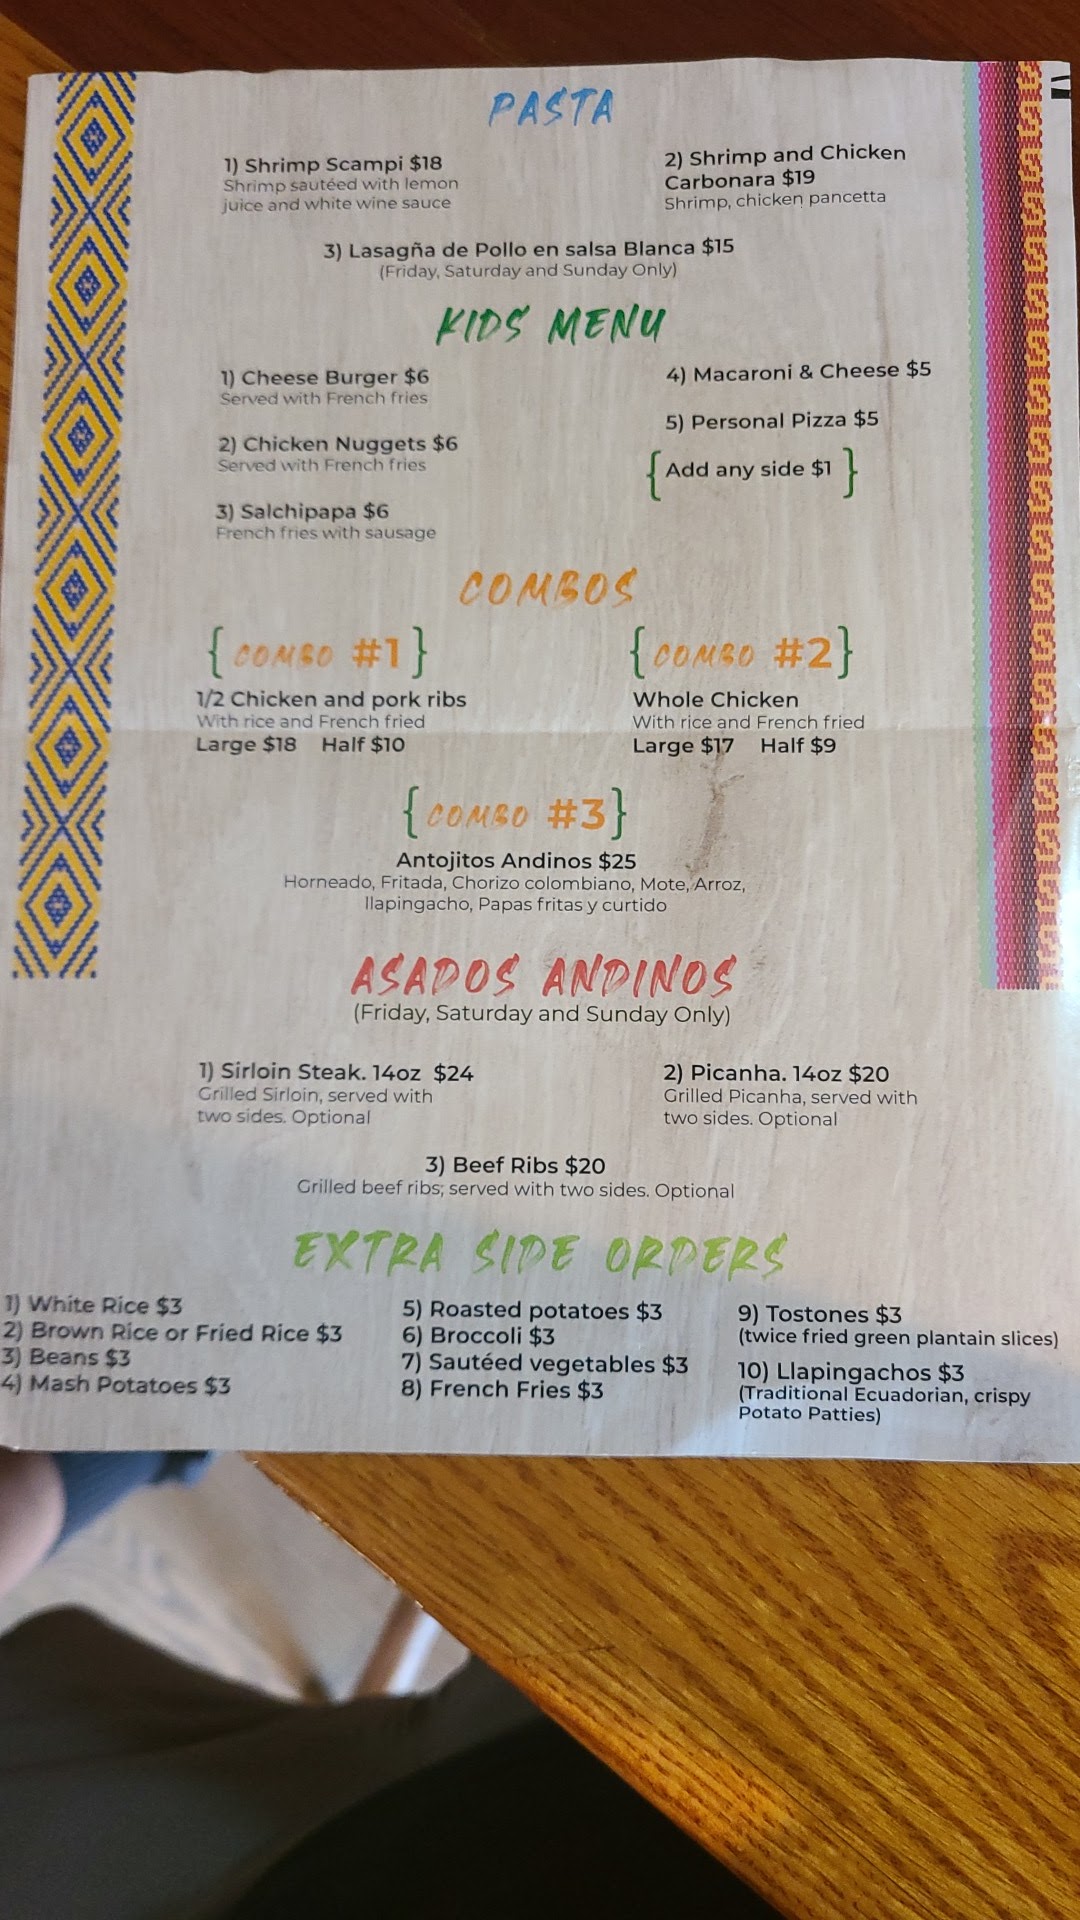 PASTA
1) Shrimp Scampi $18
Shrimp sautéed with lemon
juice and white wine sauce
2) Shrimp and Chicken
Carbonara $19
Shrimp, chicken pancetta
3) Lasagña de Pollo en salsa Blanca $15
(Friday, Saturday and Sunday Only)
KIDS MENU
1) Cheese Burger $6
Served with French fries
2) Chicken Nuggets $6
Served with French fries
3) Salchipapa $6
French fries with sausage
4) Macaroni & Cheese $5
5) Personal Pizza $5
{Add any side $1}
COMBOS
{COMBO #1}
1/2 Chicken and pork ribs
With rice and French fried
Large $18 Half $10
{COMBO #2}
Whole Chicken
With rice and French fried
Large $17 Half $9
{COMBO #3}
Antojitos Andinos $25
Horneado, Fritada, Chorizo colombiano, Mote, Arroz,
llapingacho, Papas fritas y curtido
ASADOS ANDINOS
(Friday, Saturday and Sunday Only)
1) Sirloin Steak. 14oz $24
Grilled Sirloin, served with
two sides. Optional
2) Picanha. 14oz $20
Grilled Picanha, served with
two sides. Optional
3) Beef Ribs $20
Grilled beef ribs; served with two sides. Optional
EXTRA SIDE ORDERS
1) White Rice $3
2) Brown Rice or Fried Rice $3
3) Beans $3
4) Mash Potatoes $3
5) Roasted potatoes $3
6) Broccoli $3
7) Sautéed vegetables $3
8) French Fries $3
9) Tostones $3
(twice fried green plantain slices)
10) Llapingachos $3
(Traditional Ecuadorian, crispy
Potato Patties)